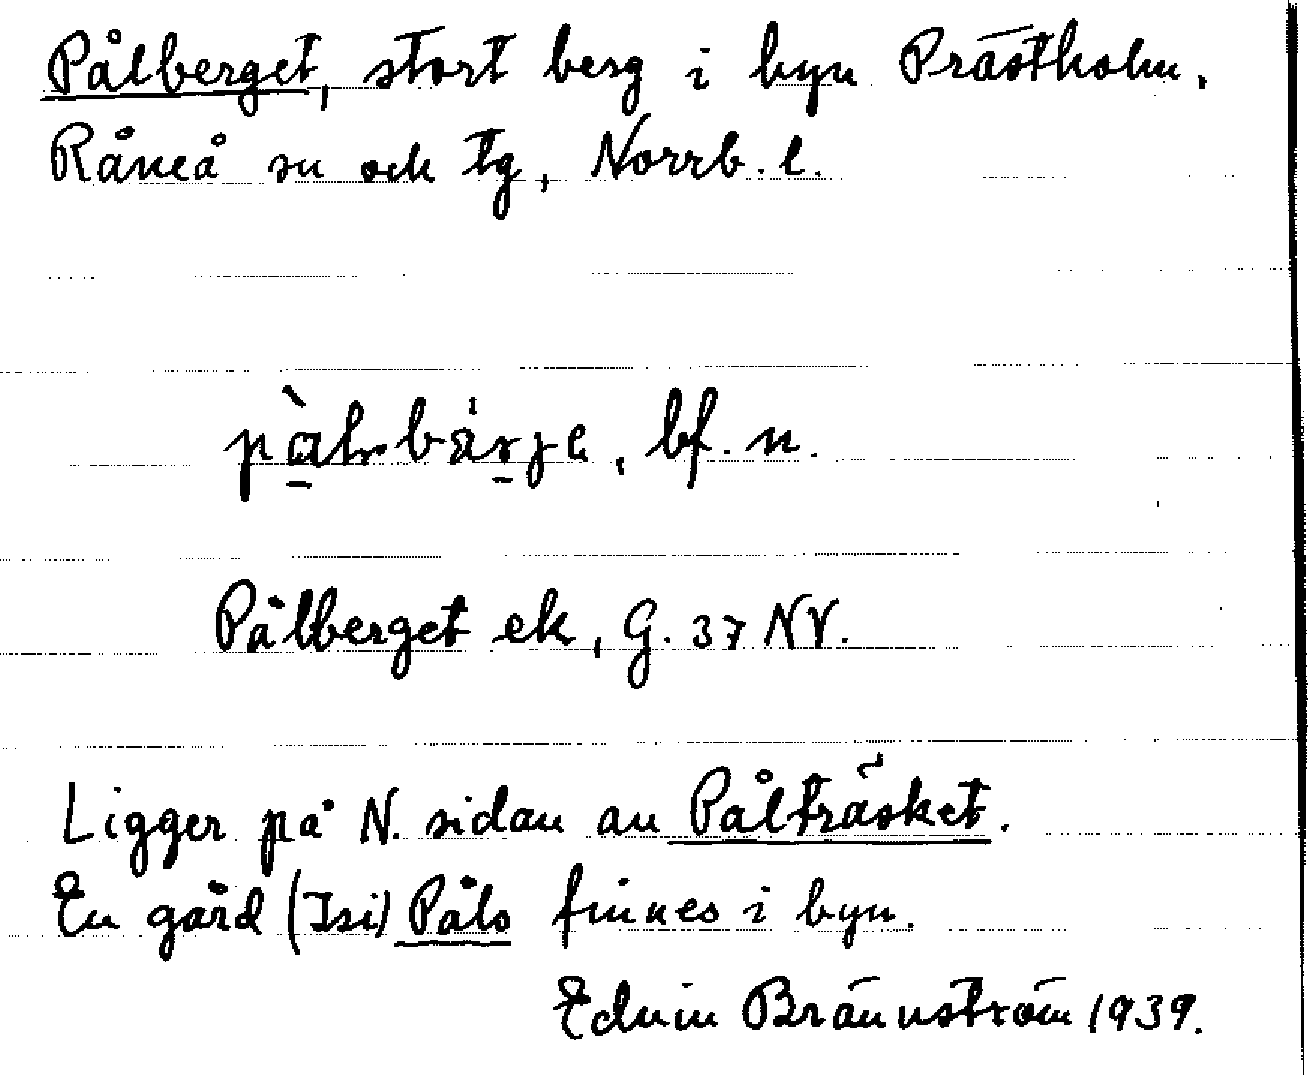 Pålberget, stort berg i byn Prästholm.
Råneå sn och tg, Norrb. l.
bf. n.
Pålberget ek, G. 37 NV.
Ligger på N. sidan av Pålträsket.
En gård (Isi) Påls finnes i byn.
Edvin Brännström 1939.